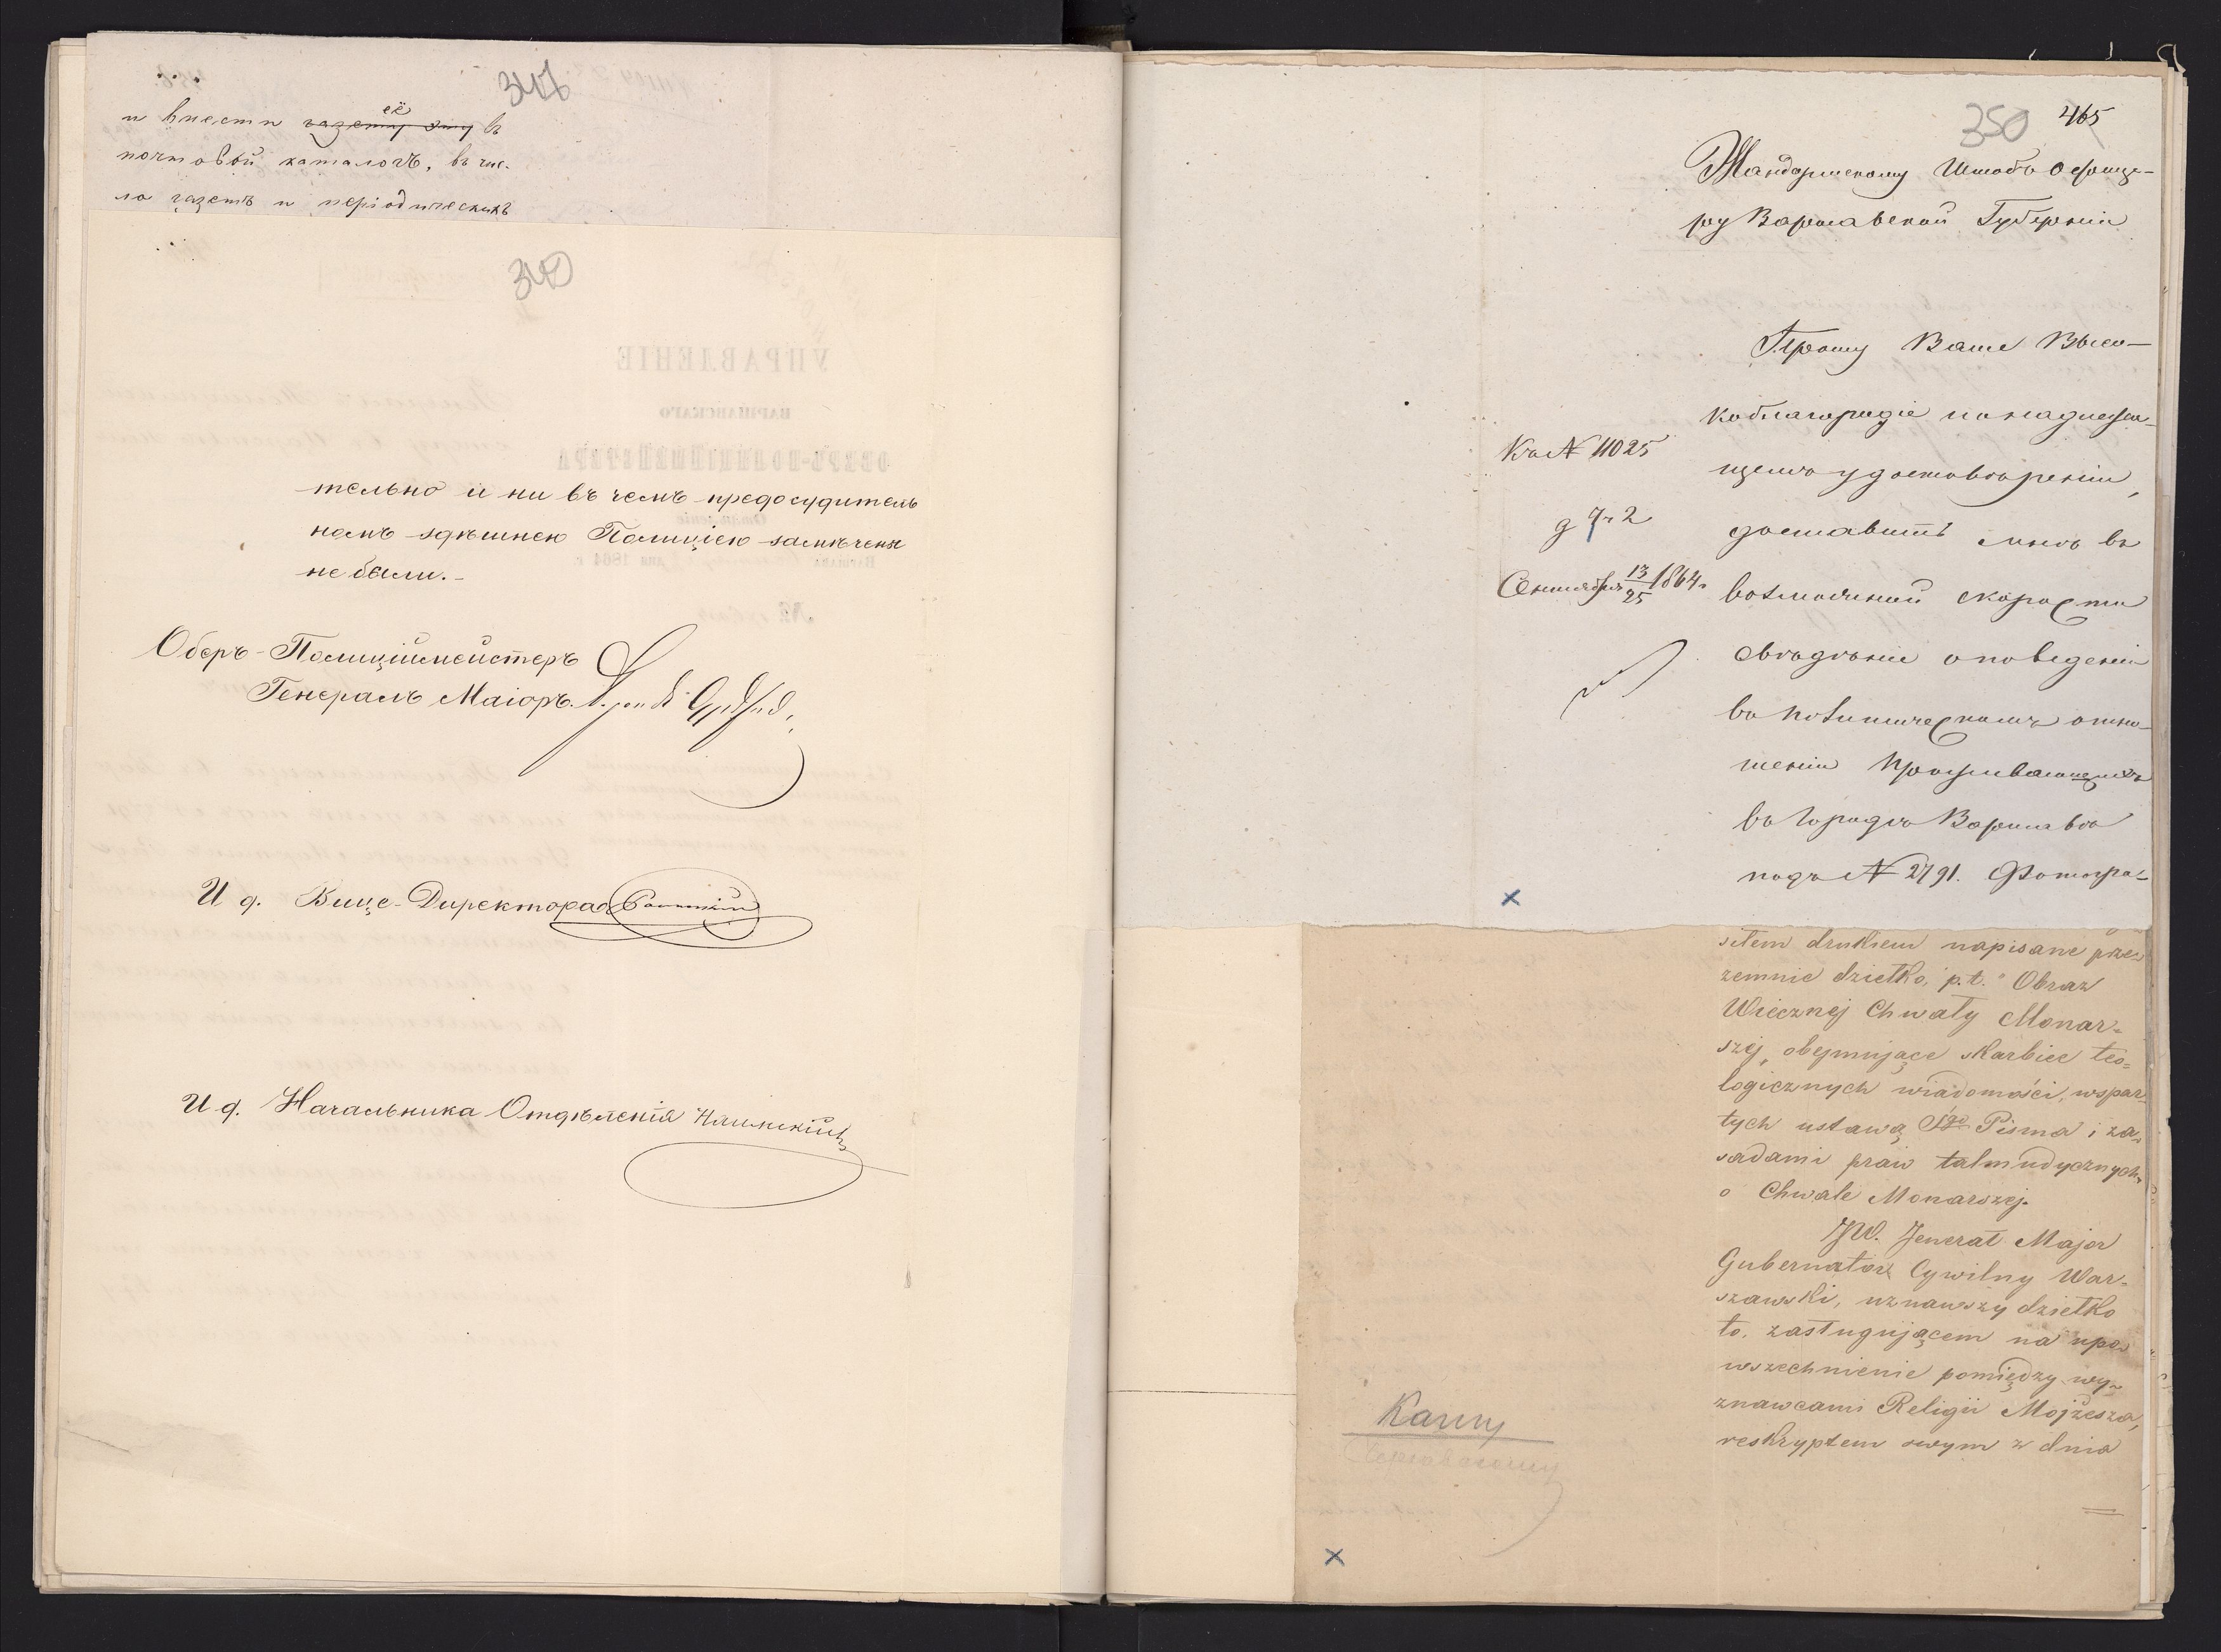 347
и внести газету эту её въ
почтовый каталогъ, въ чис-
ло газетъ и періодическихъ
340
УПРАВЛЕНІЕ
ВАРШАВСКАГО
ОБЕРЪ-ПОЛИЦІЙМЕЙСТЕРА
тельно и ни въ чемъ предосудитель
номъ здѣшнею Полиціею замѣчены
не были.-
Оберъ-Полиціймейстеръ
Генералъ Маіоръ
И д. Вице-Директора
И д. Начальника Отдѣленія
350 465
Жандармскому Штабъ Офице-
ру Варшавской Губерніи
Прошу Ваше Высо-
коблагородіе по надлежа-
щемъ удостовѣреніи,
доставить мнѣ въ
возможной скорости
свѣдѣніе о поведеніи
въ политическомъ отно-
шеніи проживающихъ
въ городѣ Варшавѣ
подъ N 2791. Фотогра-
Къ N 11025
д 7 2
Сентября 13/25 1864 г
słem drukiem napisane prze-
zemnie dziełko, p.t. "Obraz
Wiecznej Chwały Monar-
szej, obejmujące skarbiec teo-
logicznych wiadomości, wspar-
tych ustawą Sgo Pisma i za-
sadami praw talmudycznych
o Chwale Monarszej.
JW. Jenerał Major
Gubernator Cywilny War-
szawski, uznawszy dziełko
to, zasługującem na upo-
wszechnienie pomiędzy wy-
znawcami Religii Mojżesza,
reskryptem swym z dnia